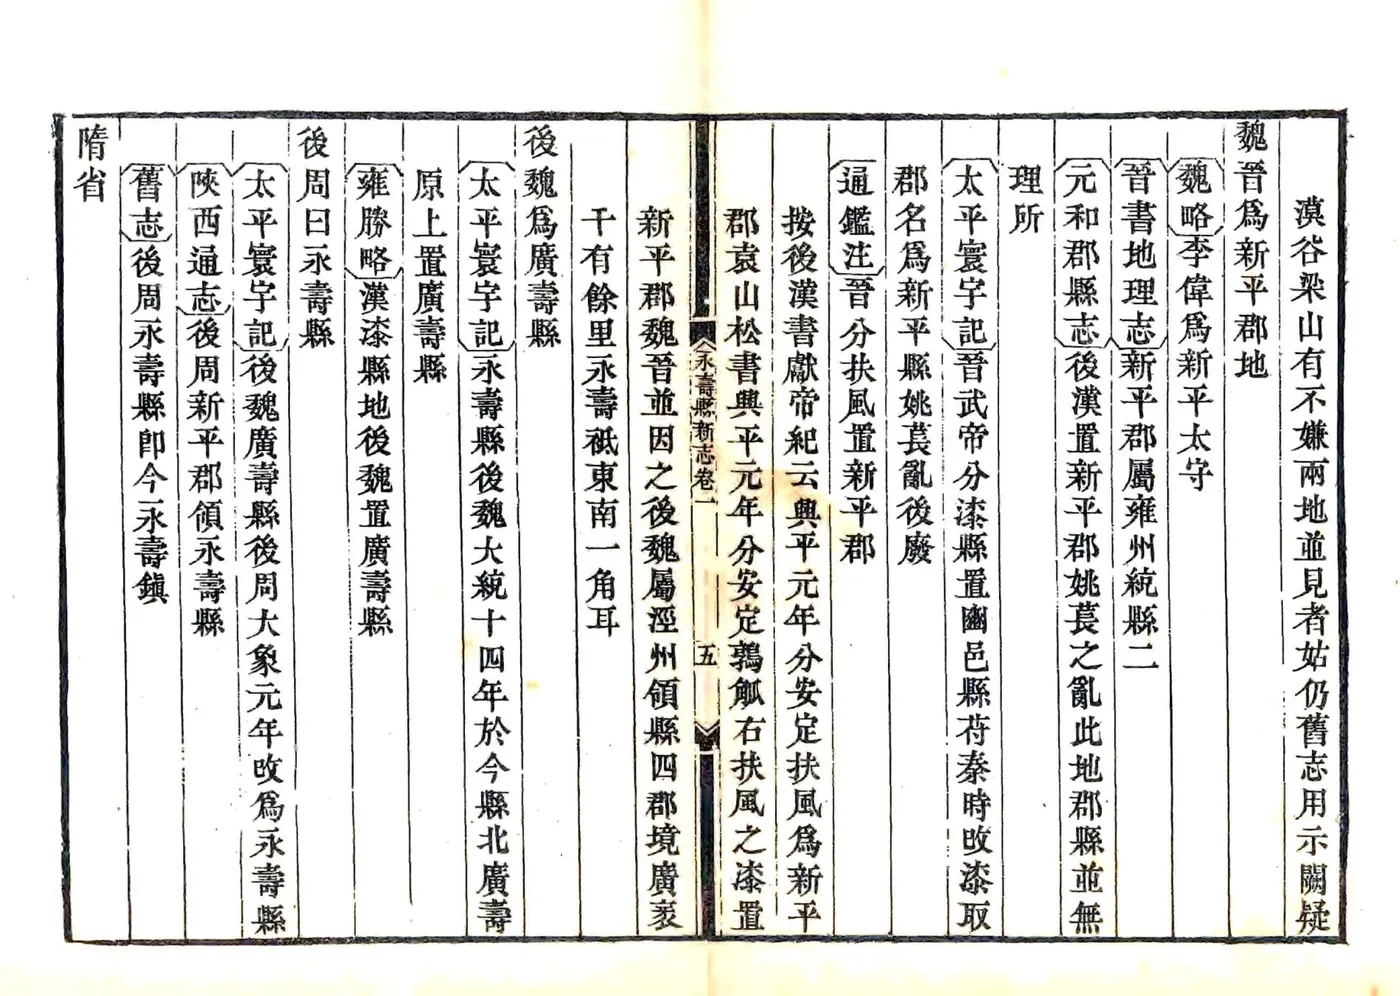 漠谷梁山有不嫌兩地並見者姑仍舊志用示闕疑
魏晉爲新平郡地
魏略李偉爲新平太守
晉書地理志新平郡屬雍州統縣二
元和郡縣志後漢置新平郡姚萇之亂此地郡縣並無
理所
太平寰宇記晉武帝分漆縣置豳邑縣苻秦時改漆取
郡名爲新平縣姚萇亂後廢
通鑑注晉分扶風置新平郡
按後漢書獻帝紀云興平元年分安定扶風爲新平
郡袁山松書興平元年分安定鶉觚右扶風之漆置
永壽縣新志卷一
五
新平郡魏晉並因之後魏屬涇州領縣四郡境廣袤
千有餘里永壽祗東南一角耳
後魏爲廣壽縣
太平寰宇記永壽縣後魏大統十四年於今縣北廣壽
原上置廣壽縣
雍勝略漢漆縣地後魏置廣壽縣
後周曰永壽縣
太平寰宇記後魏廣壽縣後周大象元年改爲永壽縣
陝西通志後周新平郡領永壽縣
舊志後周永壽縣卽今永壽鎭
隋省